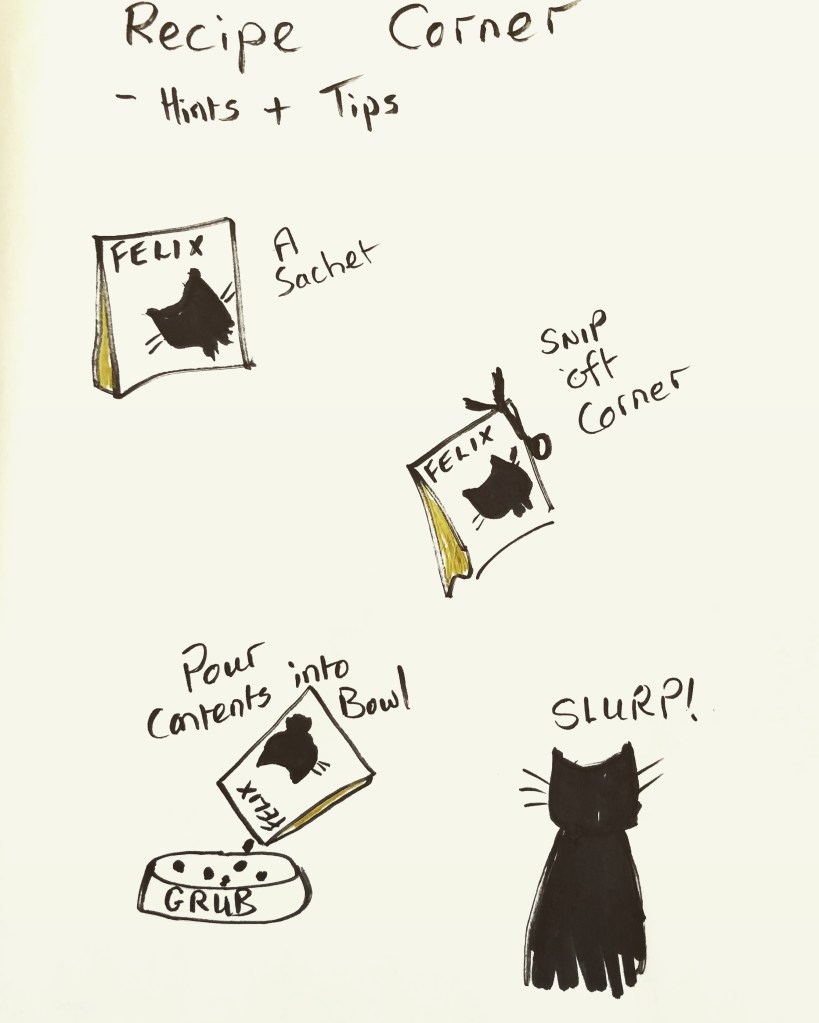 Recipe Corner
- Hints + Tips
FELIX
A
Sachet
SNIP
off
Corner
FELIX
Pour
Contents into
Bowl
FELIX
GRUB
SLURP!